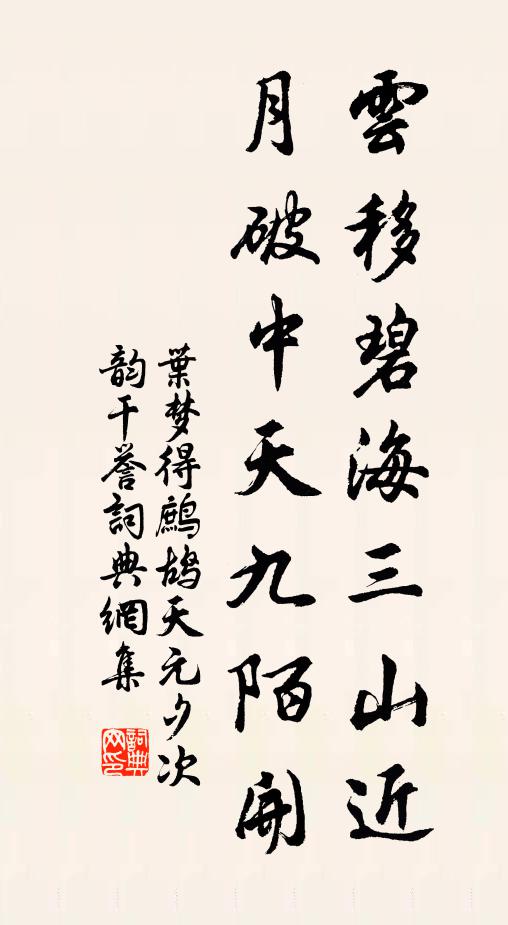 雲移碧海三山近
月破中天九陌開
葉梦得鷓鴣天元夕次
韵干誉詞典網集
詞典
网印